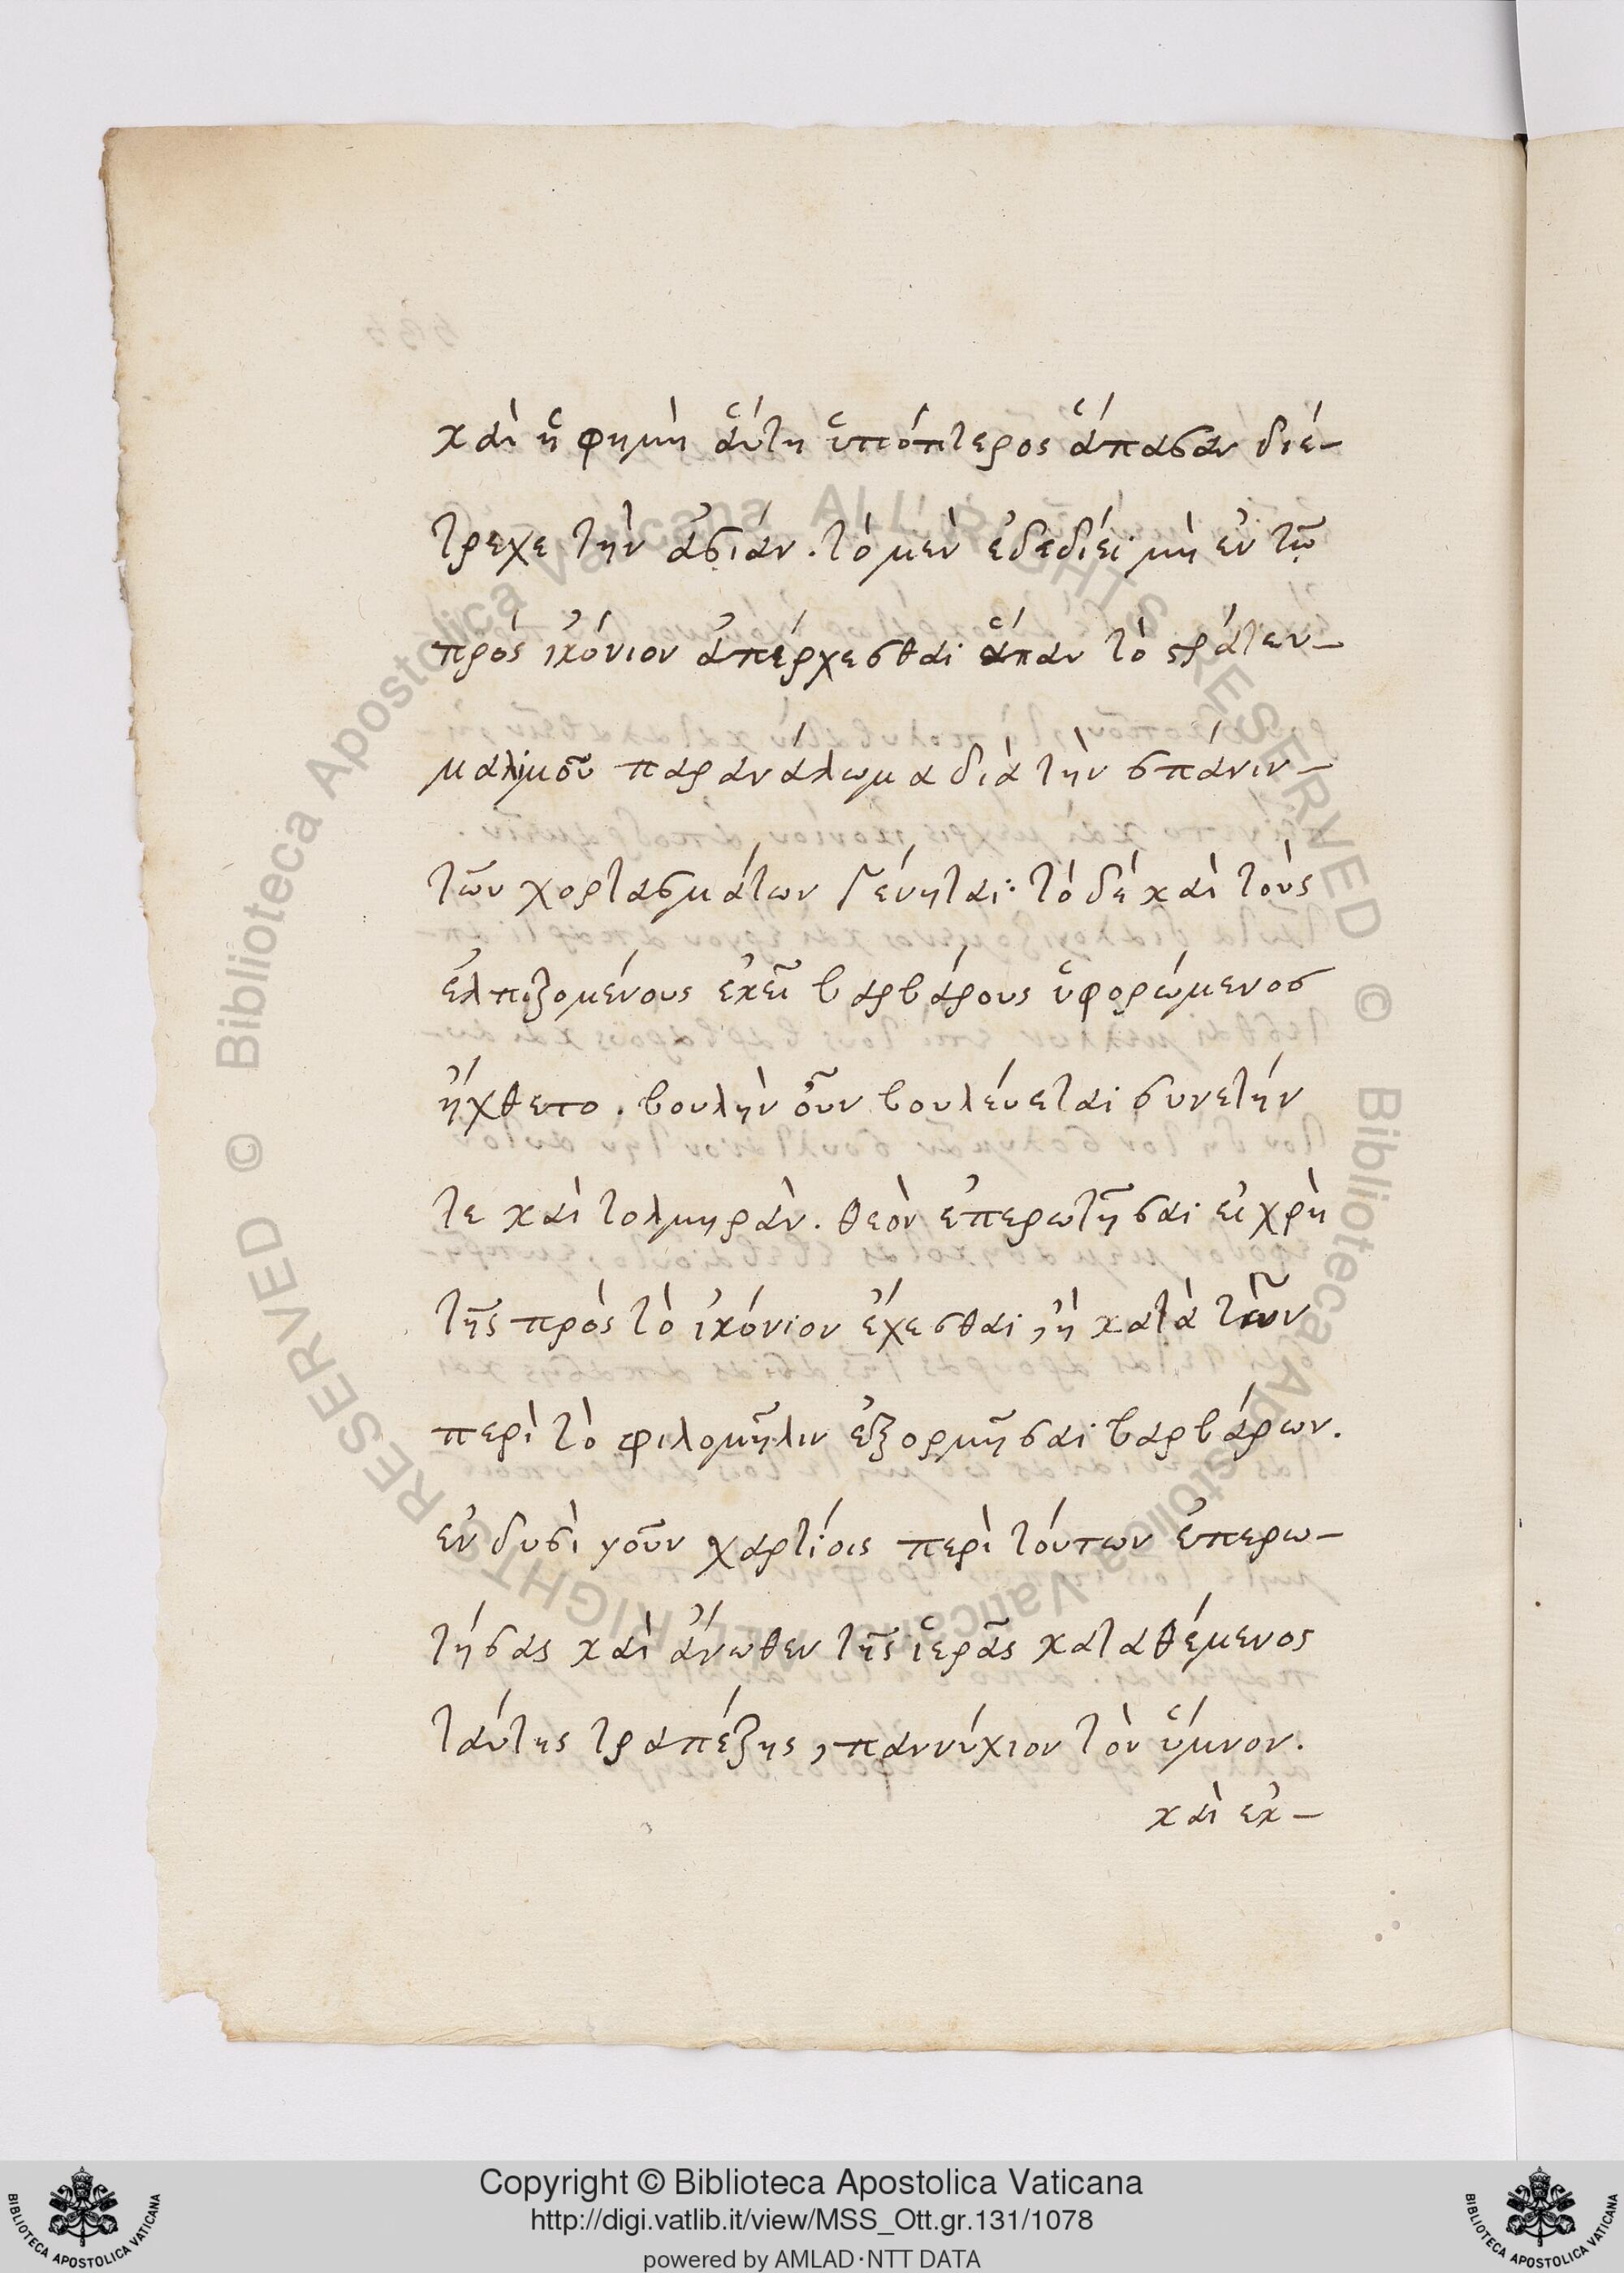 καὶ ἡ φημὴ ἅυτη ὑπόπτερος ἅπασαν διέ-
τρεχε τὴν ἀσιάν. τὸ μὲν ἐδεδίει μὴ ἐν τῷ
πρὸς ἰκόνιον ἀπέρχεσθαι ἅπαν τὸ στράτευ-
μα λιμοῦ παρανάλωμα διὰ τὴν σπάνιν-
τῶν χορτασμάτων γένηται· τὸ δὲ καὶ τοὺς
ἐλπιζομένους ἐκεῖ βαρβάρους ὑφορώμενος
ἤχθετο. βουλὴν οὖν βουλέυεται συνετήν
τε καὶ τολμηρὰν. θεὸν ἐπερωτῆσαι εἰ χρὴ
τῆς πρὸς τὸ ἰκόνιον ἔχεσθαι, ἢ κατὰ τῶν
περὶ τὸ φιλομῆλιν ἐξορμῆσαι βαρβάρων.
ἐν δυσὶ γοῦν χαρτίοις περὶ τόυτων ἐπερω-
τήσας καὶ ἄνωθεν τῆς ἱερᾶς καταθέμενος
τάυτης τραπέζης, παννύχιον τὸν ὕμνον.
καὶ ἐκ-
Copyright © Biblioteca Apostolica Vaticana
http://digi.vatlib.it/view/MSS_Ott.gr.131/1078
powered by AMLAD·NTT DATA
BIBLIOTECA APOSTOLICA VATICANA
BIBLIOTECA APOSTOLICA VATICANA
© Biblioteca Apostolica Vaticana ALL RIGHTS RESERVED © Biblioteca Apostolica Vaticana ALL RIGHTS RESERVED